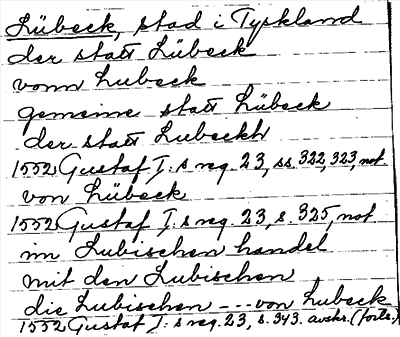 Lübeck, stad i Tyskland
der statt Lübeck
vonn Lubeck
gemeine statt Lübeck
der statt Lubeckh
1552 Gustaf I:s reg. 23, ss. 322, 323, not
von Lübeck
1552 Gustaf I:s reg. 23, s. 325, not
im Lubischen handel
mit den Lubischen
die Lubischen --- von Lubeck
1552 Gustaf I:s reg. 23, s. 343. avskr. (forts.)